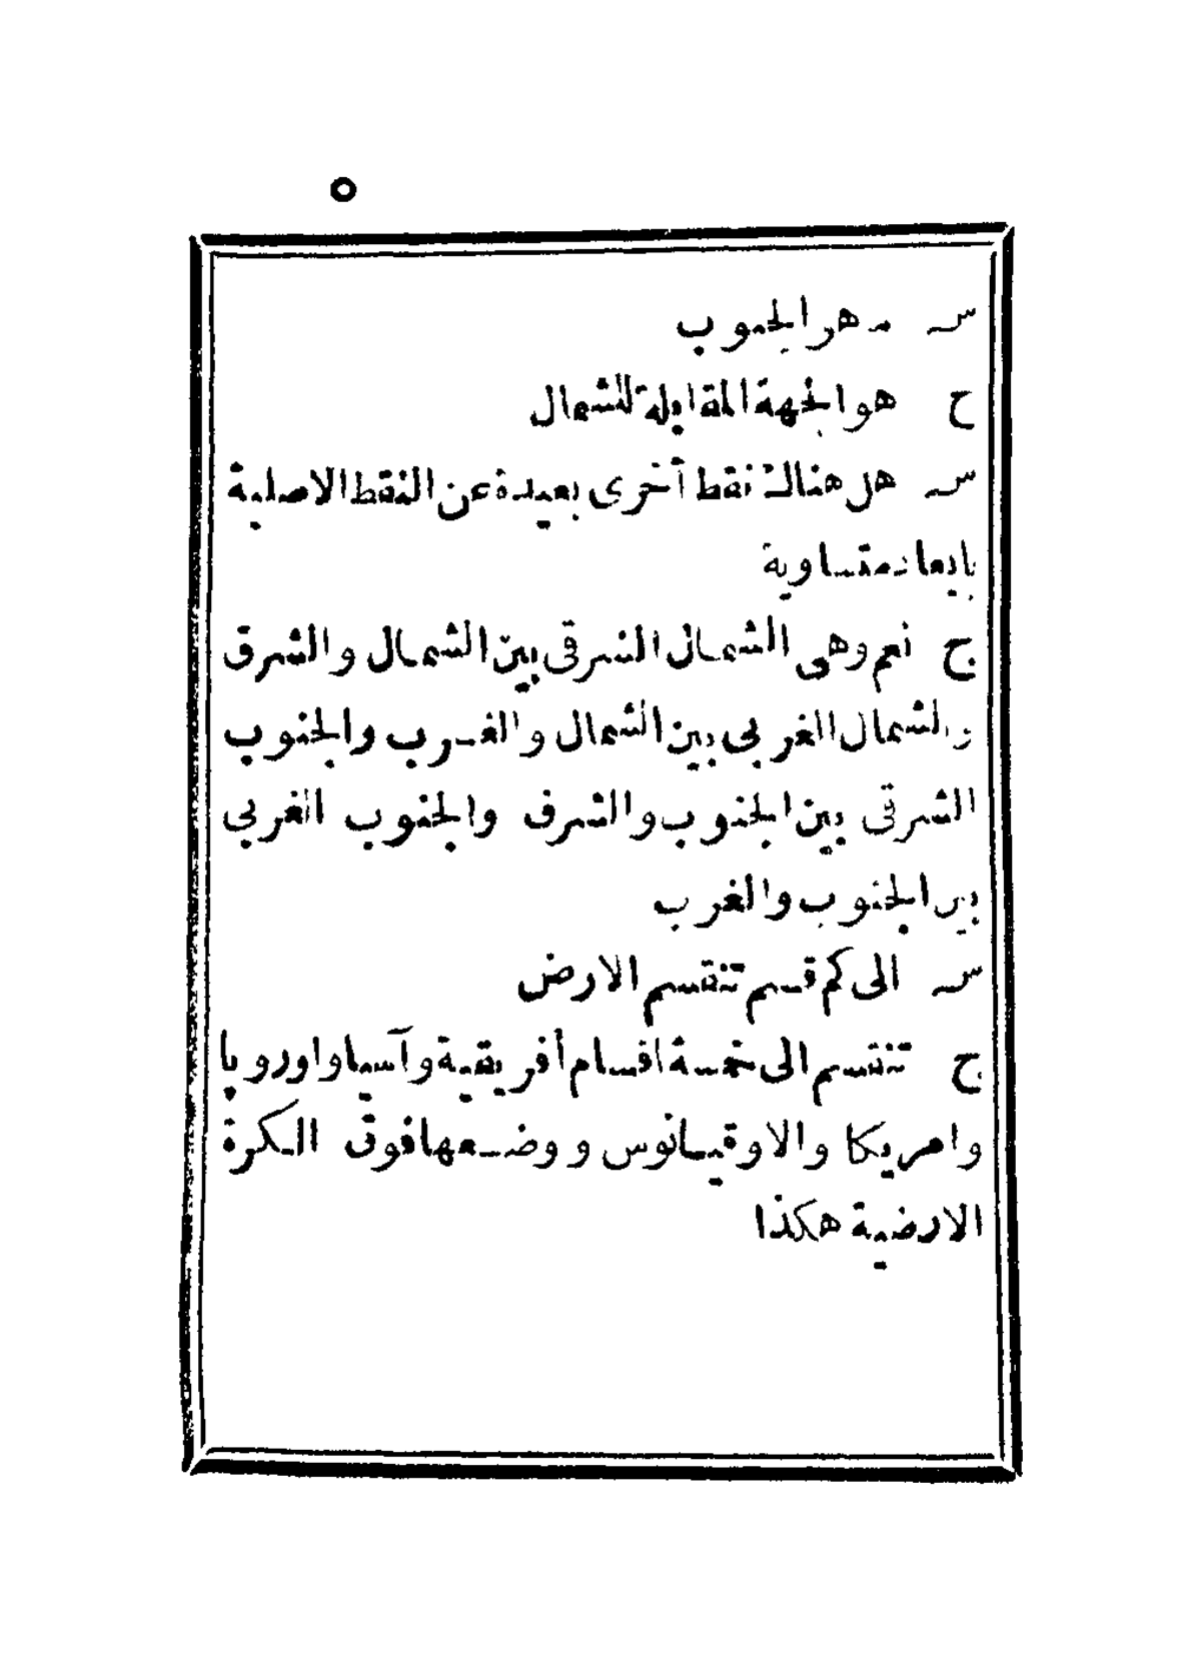 ٥
س ما هو الجنوب
ج هو الجهة المقابلة للشمال
س هل هناك نقط أخرى بعيدة عن النقط الاصلية
بابعاد متساوية
ج نعم وهى الشمال الشرقى بين الشمال والشرق
والشمال الغربى بين الشمال والغرب والجنوب
الشرقى بين الجنوب والشرق والجنوب الغربى
بين الجنوب والغرب
س الى كم قسم تنقسم الارض
ج تنقسم الى خمسة اقسام أفريقية وآسيا واوروپا
وامريكا والاوقيانوس ووضعها فوق الكرة
الارضية هكذا